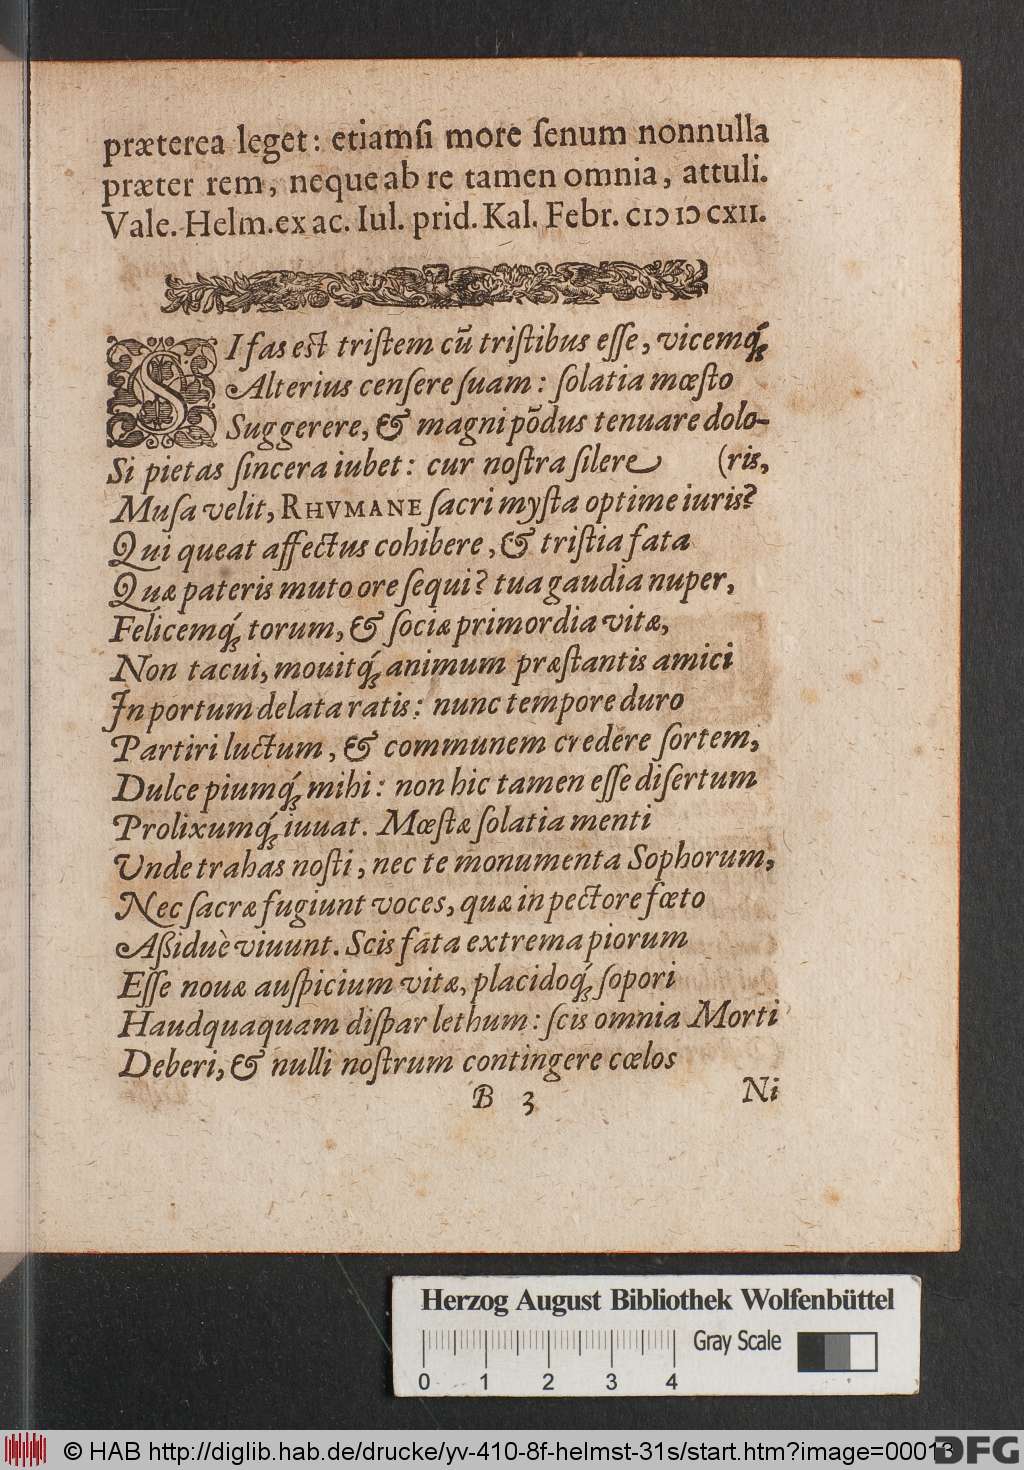 præterea leget: etiamſi more ſenum nonnulla
præter rem, neque ab re tamen omnia, attuli.
Vale. Helm. ex ac. Iul. prid. Kal. Febr. cIↄ Iↄ cXII.
SI fas est triſtem cū triſtibus eſſe, vicemq́ꝫ
Alterius cenſere ſuam: ſolatia mœſto
Suggerere, & magni põdus tenuare dolo-
Si pietas ſincera iubet: cur noſtra ſilere (ris,
Muſa velit, RHVMANE ſacri myſta optime iuris?
Qui queat affectus cohibere, & triſtia fata
Quæ pateris muto ore ſequi? tua gaudia nuper,
Felicemq́ꝫ torum, & ſociæ primordia vitæ,
Non tacui, mouitq́ꝫ animum præſtantis amici
In portum delata ratis: nunc tempore duro
Partiri luctum, & communem credere ſortem,
Dulce piumq́ꝫ mihi: non hic tamen eſſe diſertum
Prolixumq́ꝫ iuuat. Mœſtæ ſolatia menti
Unde trahas noſti, nec te monumenta Sophorum,
Nec ſacræ fugiunt voces, quæ in pectore fœto
Aßiduè viuunt. Scis fata extrema piorum
Eſſe nouæ auſpicium vitæ, placidoq́ꝫ ſopori
Haudquaquam diſpar lethum: ſcis omnia Morti
Deberi, & nulli noſtrum contingere cœlos
B 3 Ni
Herzog August Bibliothek Wolfenbüttel
Gray Scale
0 1 2 3 4
© HAB http://diglib.hab.de/drucke/yv-410-8f-helmst-31s/start.htm?image=00013
DFG